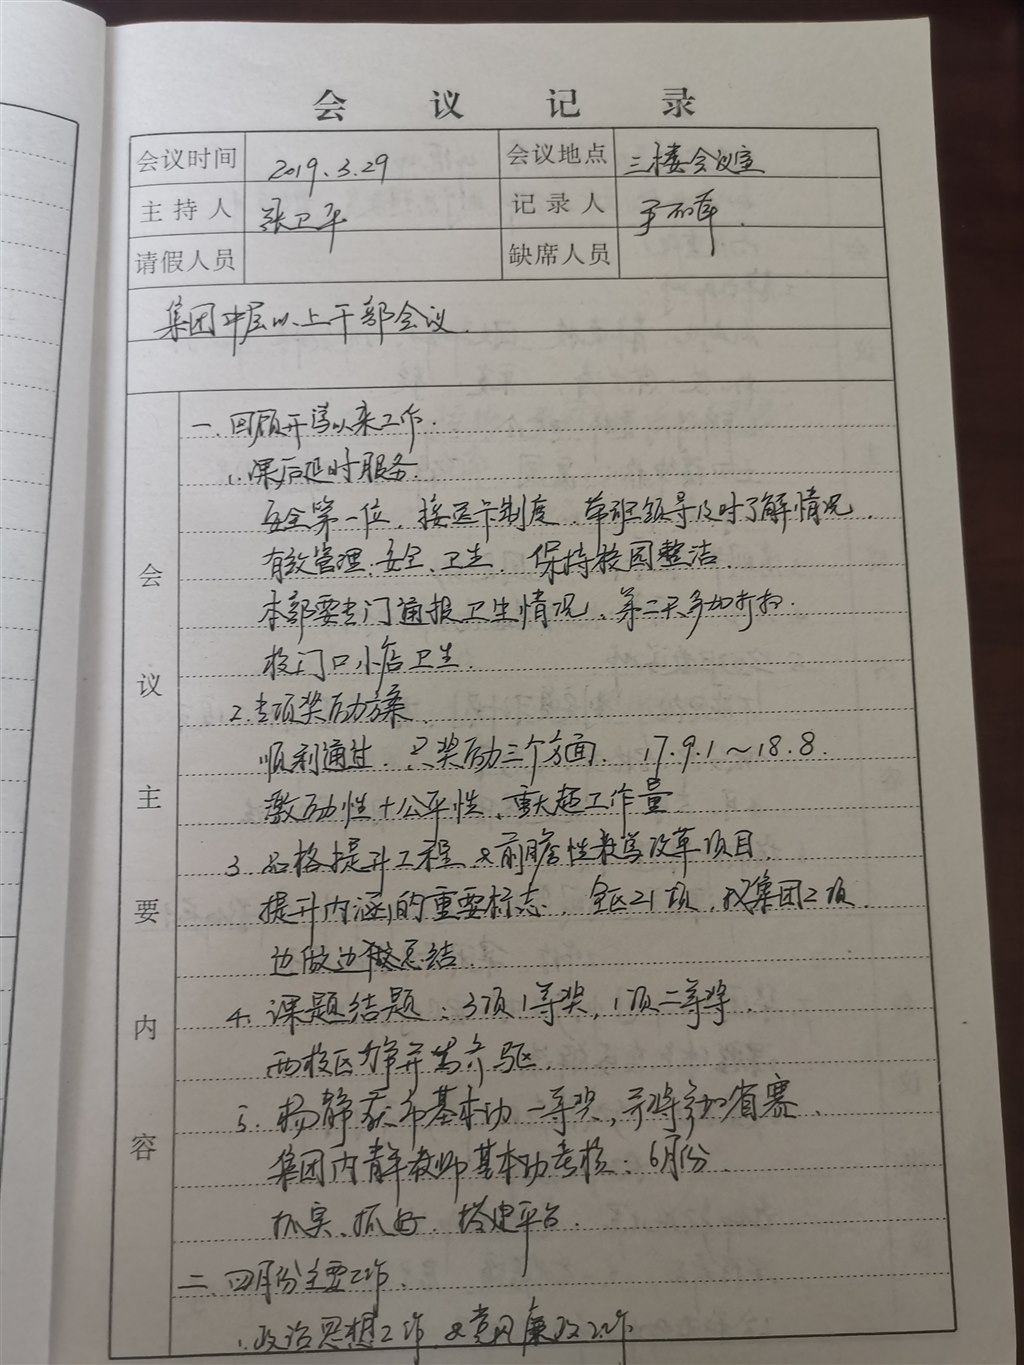 会议记录
会议时间 2019.3.29 会议地点 三楼会议室
主持人 张卫平 记录人
请假人员 缺席人员
集团中层以上干部会议.
会议主要内容
一.回顾开学以来工作.
1.课后延时服务.
安全第一位.接送卡制度.带班领导及时了解情况.
有效管理.安全、卫生.保持校园整洁.
本部要专门通报卫生情况,第二天多加打扫.
校门口小店卫生.
2.专项奖励方案.
顺利通过.只奖励三个方面. 17.9.1~18.8.
激励性+公平性、重大超工作量
3.品格提升工程&前瞻性教学改革项目.
提升内涵的重要标志.全区21项,我集团2项.
边做边做总结.
4.课题结题:3项1等奖,1项二等奖.
两校区力争并驾齐驱.
5.杨静获市基本功一等奖,并将参加省赛.
集团内青年教师基本功考核:6月份.
抓实、抓好.搭建平台.
二.四月份主要工作.
1.政治思想工作&党风廉政工作